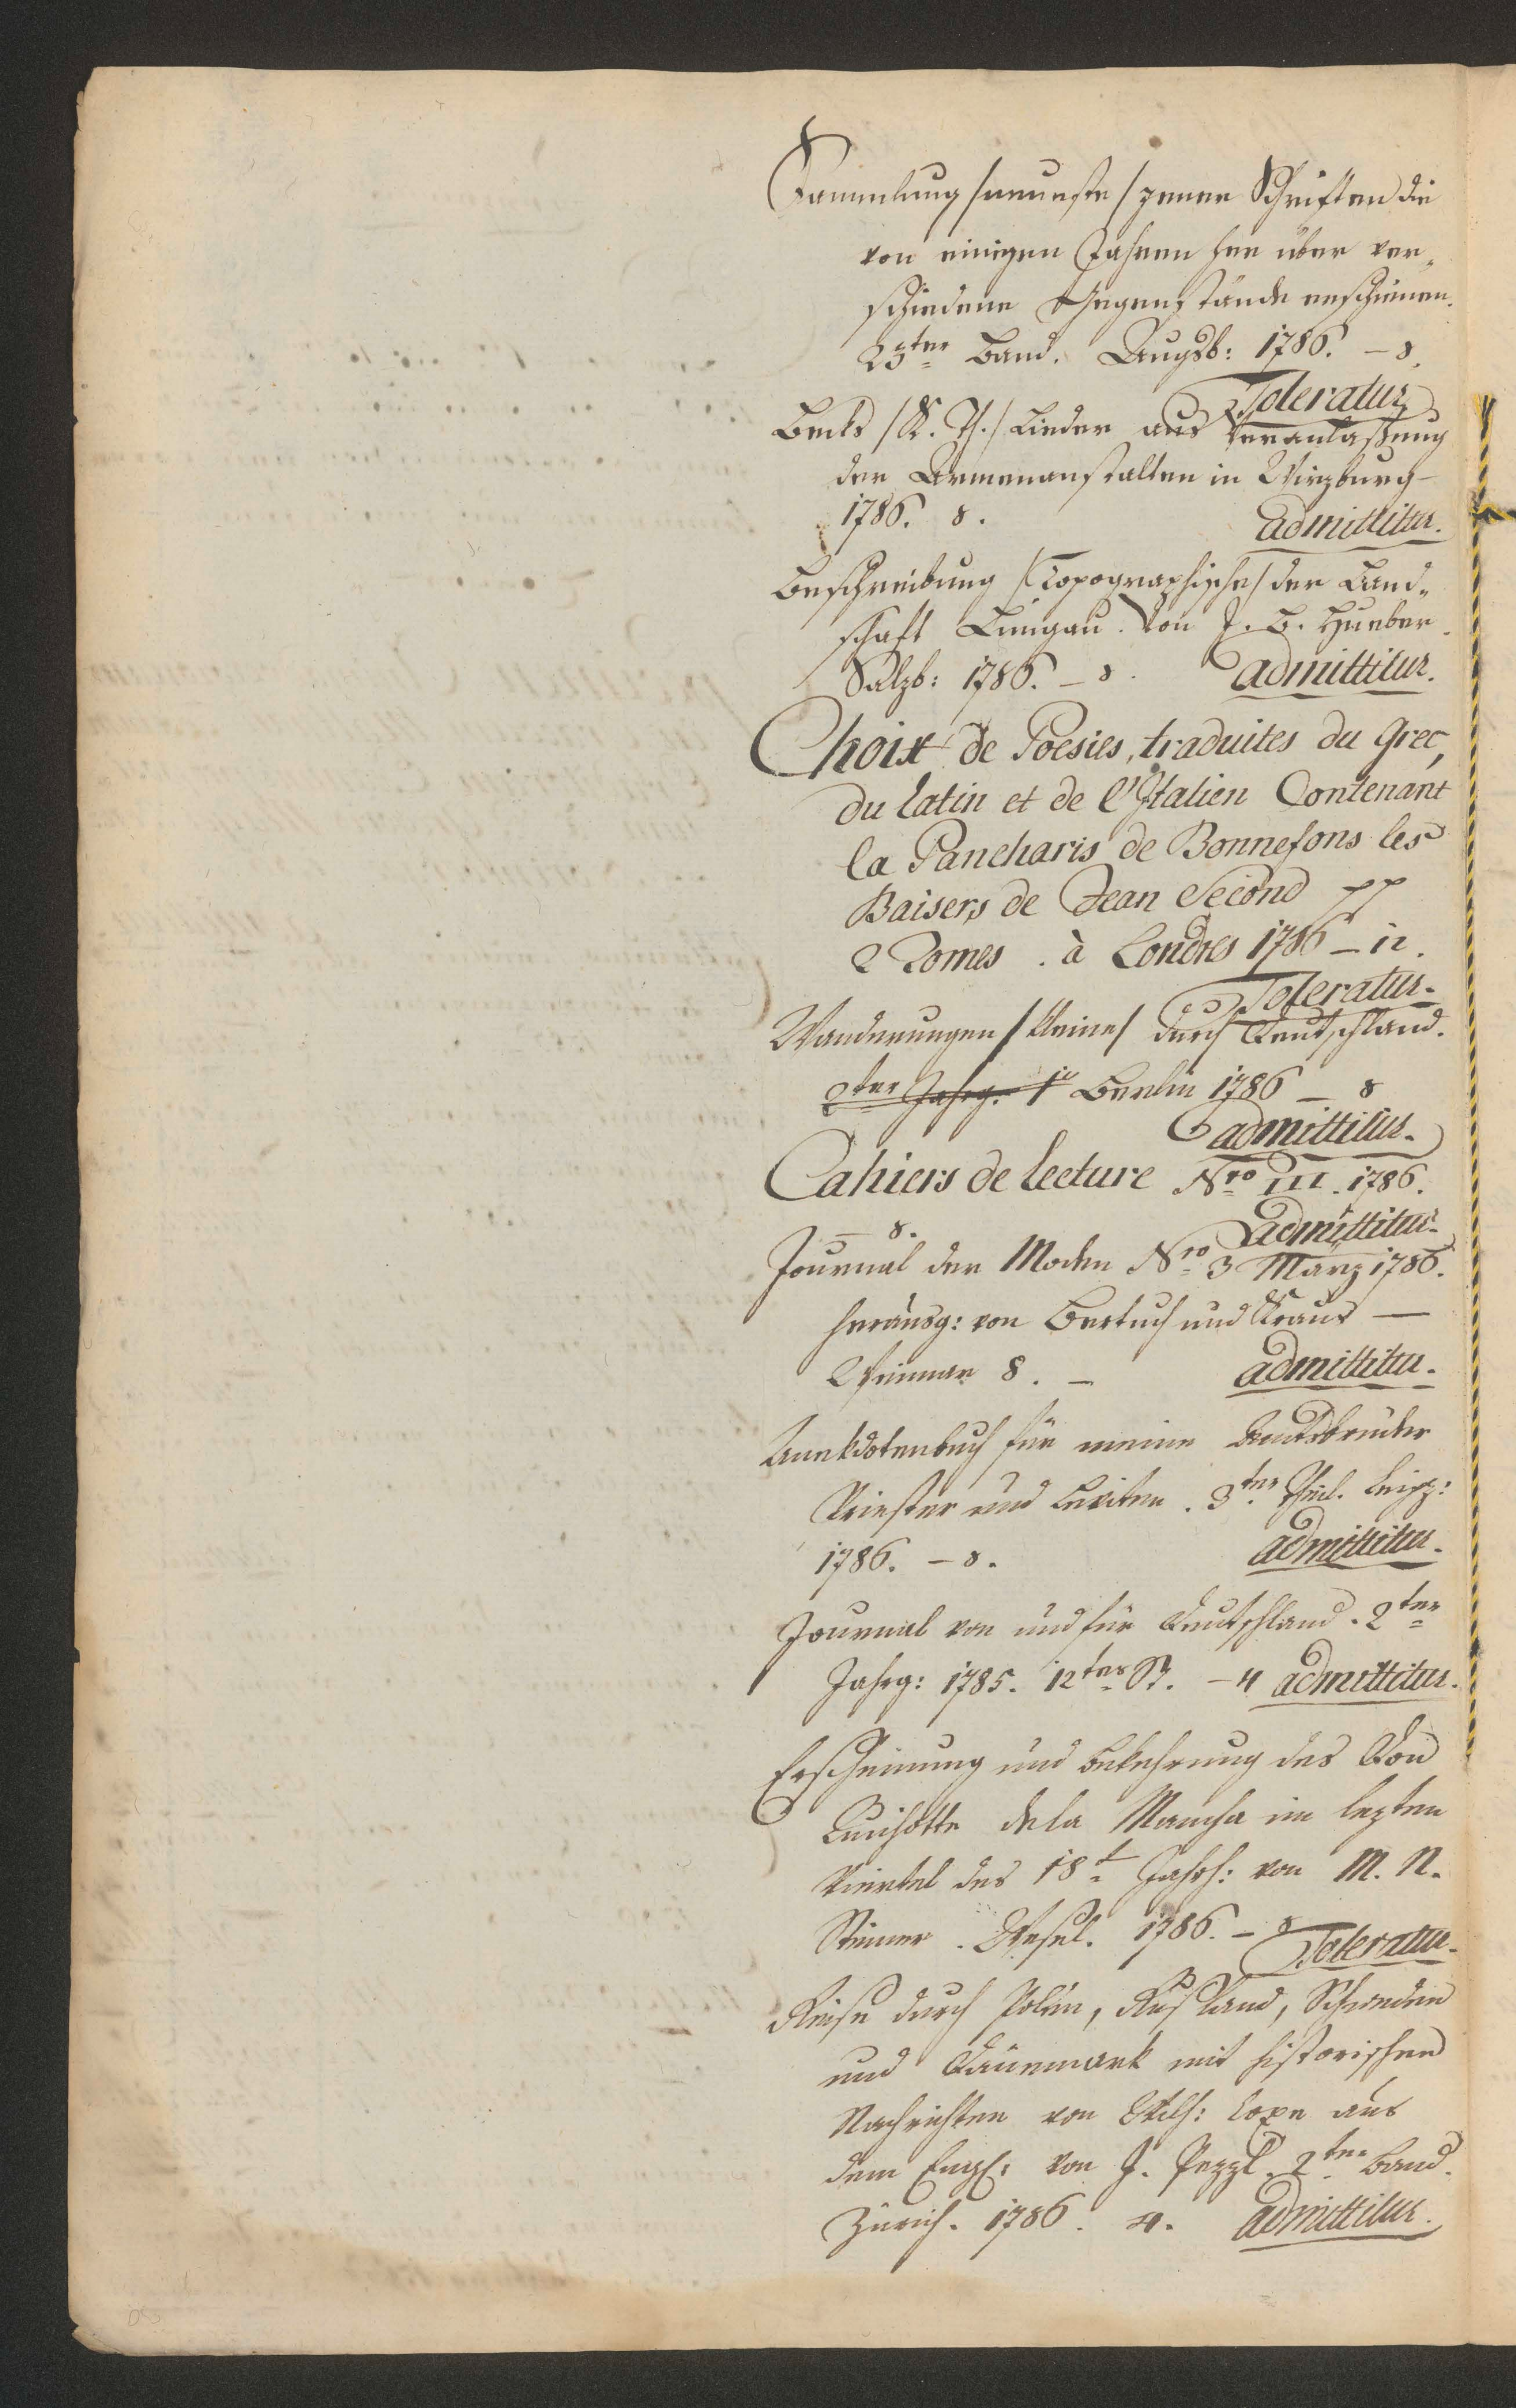 Sammlung /neueste/ jener Schriften die
von einigen Jahren her über ver„
schiedene Gegenstände erschienen.
23ter Band. Augsb: 1786. – 8.
Toleratur
Becks /K. Th./ Lieder aus Veranlaßung
der Armenanstalten in Wirzburg
1786. 8. admittitur.
Beschreibung /Topographische/ der Land„
schaft Lungau. Von J. B. Hueber.
Salzb: 1786. – 8. admittitur.
Choix de Poesies, traduites du Grec,
du latin et de l'Italien Contenant
la Pancharis de Bonnefons les
Baisers de Jean Second pp
2 Tomes. à Londres 1786 – 12.
Toleratur.
Wanderungen /kleine/ durch Teutschland.
2ter Jahrg. 1 Berlin 1786 – 8
admittitur.
Cahiers de lecture Nro III. 1786.
– 8. admittitur.
Journal der Moden Nro 3 März 1786.
herausg: von Bertuch und Kraus —
Weimar 8. – admittitur.
Anekdotenbuch für meine Amtsbrüder
Priester und Leviten. 3ter Theil. Leipz:
1786. – 8. admittitur.
Journal von und für Teutschland. 2ter
Jahrg: 1785. 12tes St. – 4 admittitur.
Erscheinung und Bekehrung des Don
Quichotte dela Mancha im lezten
Viertel des 18t Jahrh: von M. N.
Steiner. Wesel. 1786. – 8
Toleratur.
Reise durch Polen, Rußland, Schweden
und Dänemark mit historischen
Nachrichten von Wilh: Coxe aus
dem Engl: von J. Pezzl. 2ter Band.
Zürich. 1786. 4. admittitur.